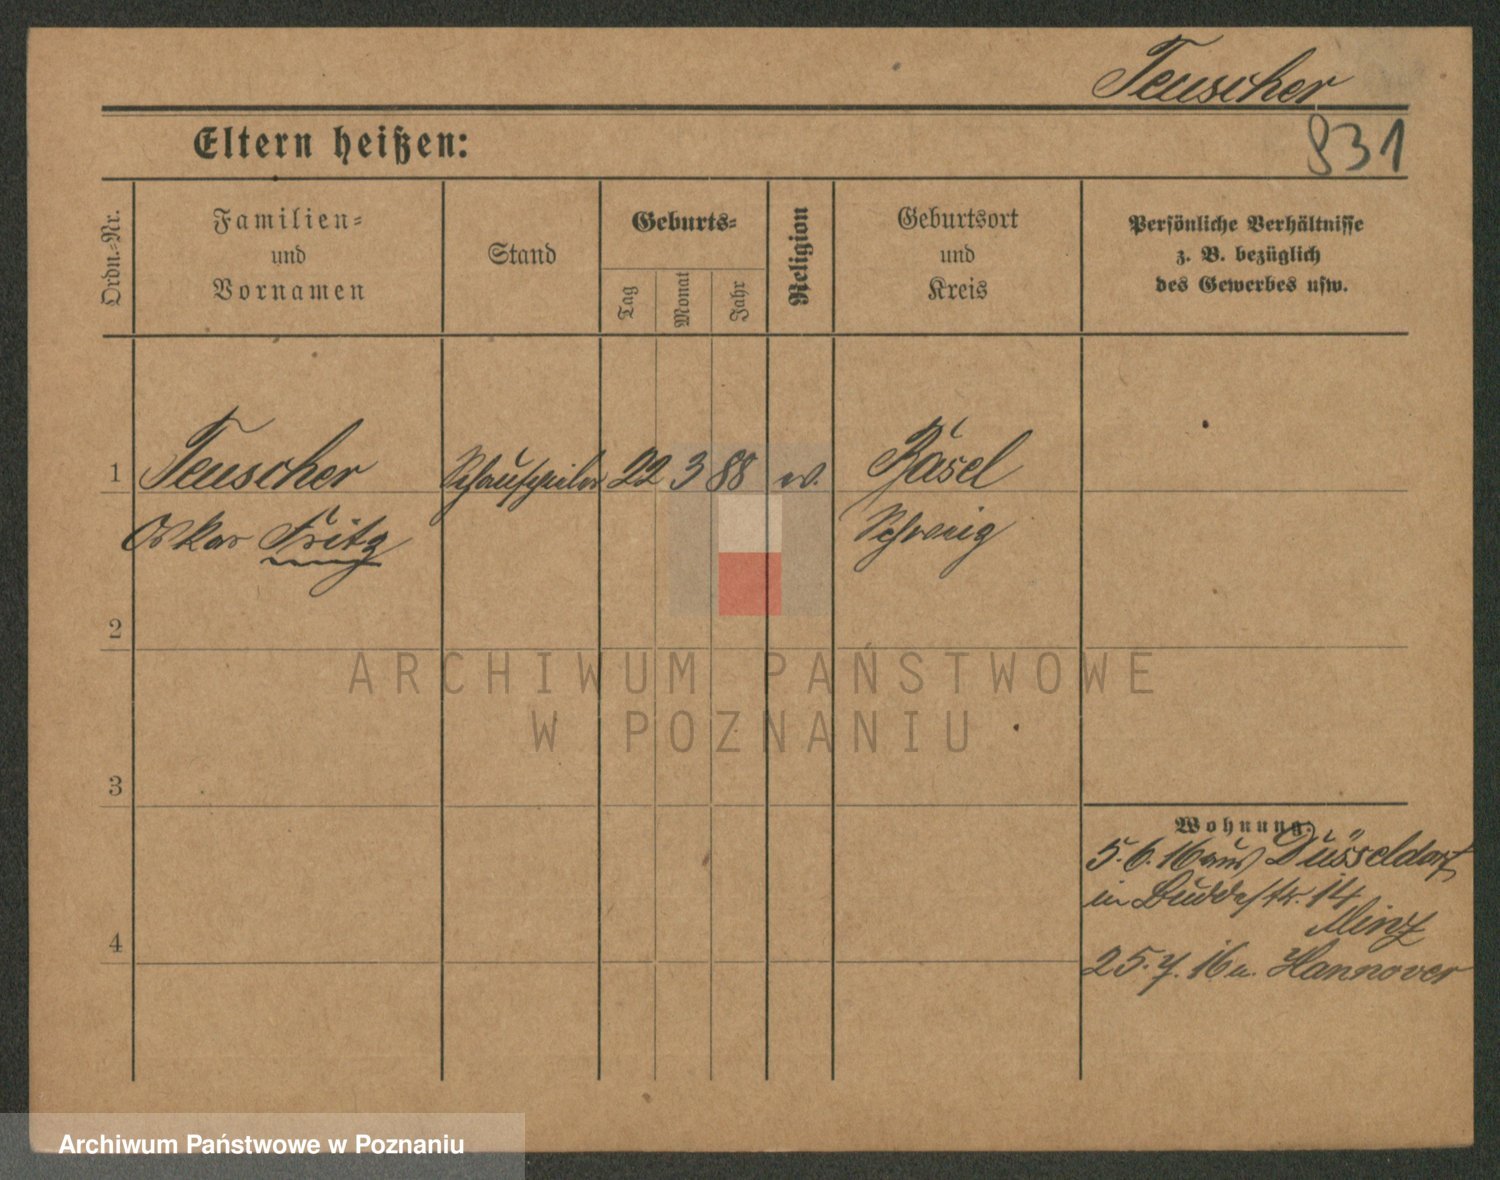 Teuscher
831
Eltern heißen:
Ordn.-Nr.
Familien-
und
Vornamen
Stand
Geburts-
Tag
Monat
Jahr
Religion
Geburtsort
und
Kreis
Persönliche Verhältnisse
z. B. bezüglich
des Gewerbes usw.
1 Teuscher Schauspieler 22 3 88 ev. Basel
Oskar Fritz Schweiz
2
3
4
Wohnung.
5.6.16 aus Düsseldorf
in Buddestr. 14
25.7.16 n. Hannover
ARCHIWUM PAŃSTWOWE
W POZNANIU
Archiwum Państwowe w Poznaniu